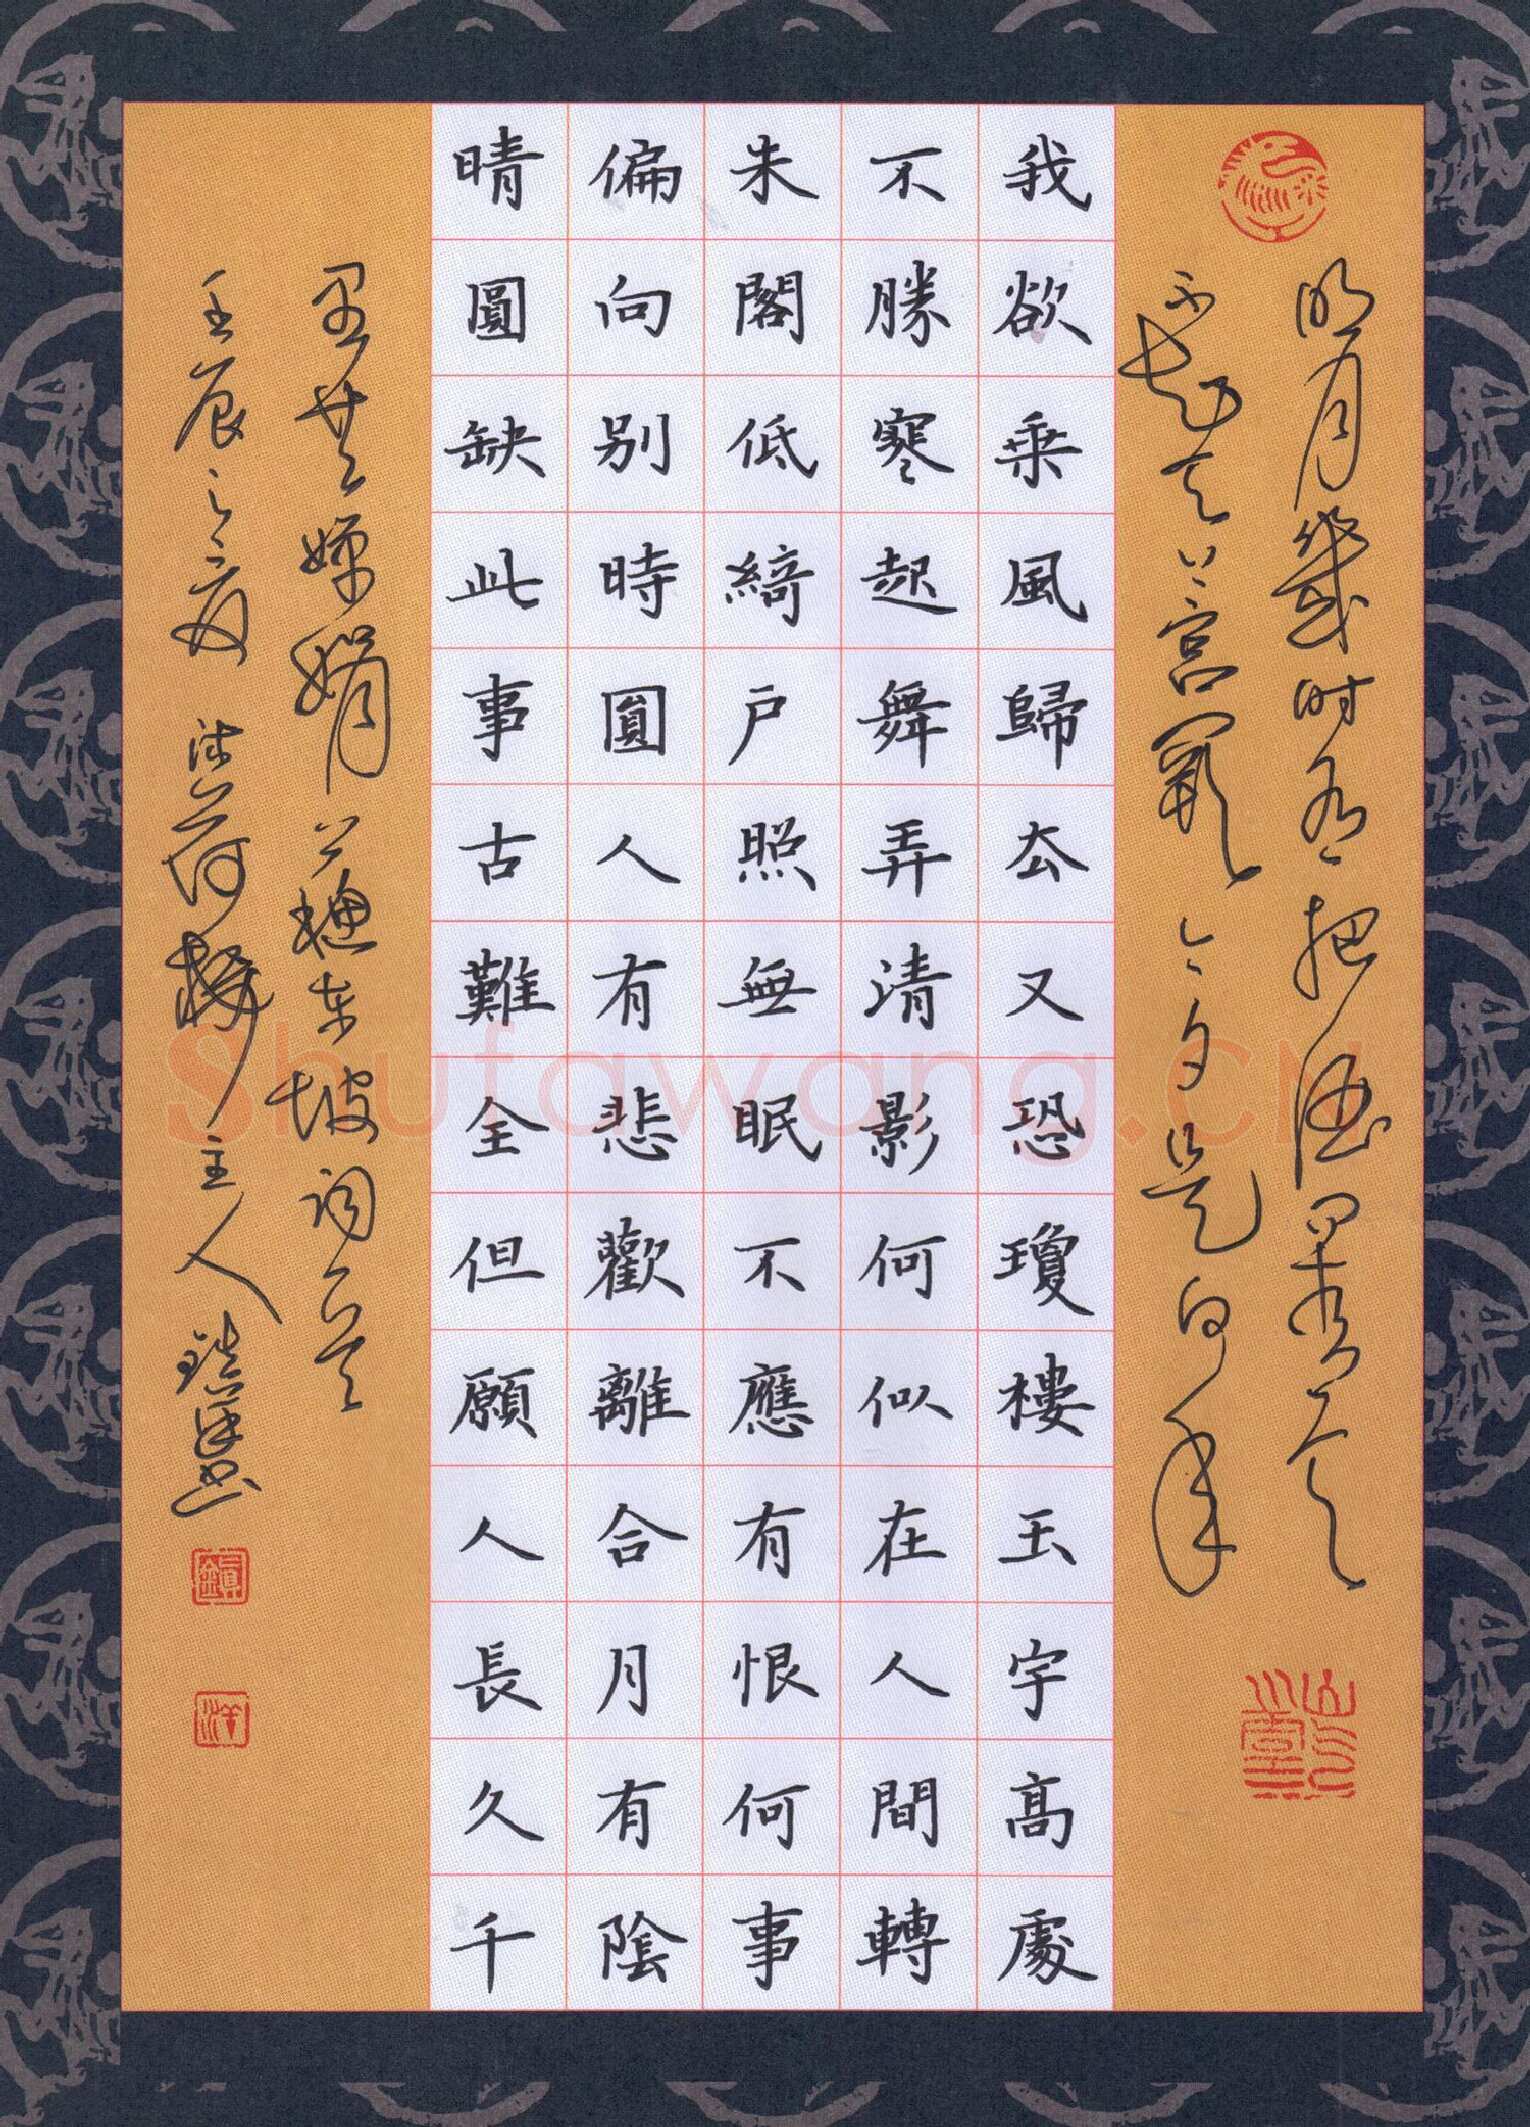 明月幾時有把酒問青天
不知天上宮闕今夕是何年
我欲乘風歸去又恐瓊樓玉宇高處
不勝寒起舞弄清影何似在人間轉
朱閣低綺戶照無眠不應有恨何事
偏向別時圓人有悲歡離合月有陰
晴圓缺此事古難全但願人長久千
里共嬋娟 東坡詞一首
壬辰之夏 荷樓主人鎮洋書
鎮
洋
Shufawang.CN